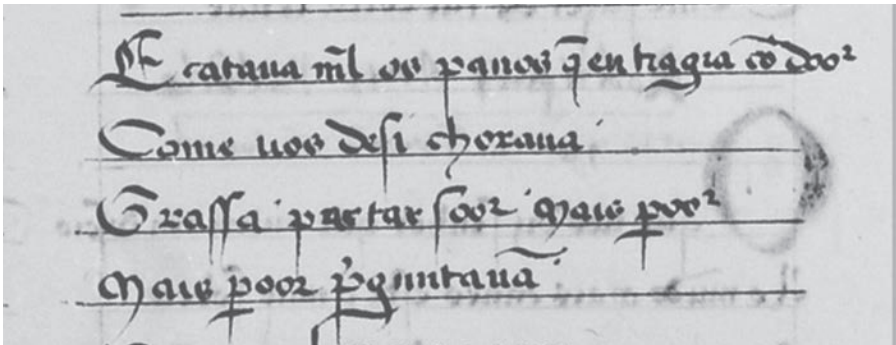 E cataua m̃l os panos q̃ eu tragia cõ doo2
Come uos desi choraua
Grassa partar soo2 mais poo2
Mais poo2 p̃guntauã